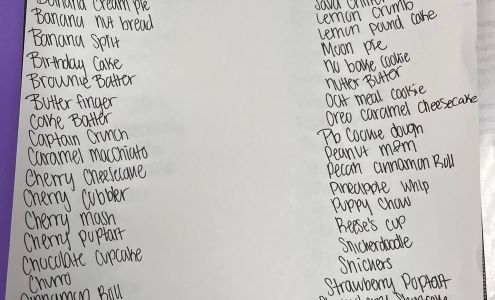 Banana cream pie
Banana nut bread
Banana Split
Birthday Cake
Brownie Batter
Butter finger
Cake Batter
Captain Crunch
Caramel macchiato
Cherry Cheesecake
Cherry Cobbler
Cherry mash
Cherry Poptart
Chocolate Cupcake
Churro
Cinnamon Roll
Java
Lemon Crumb
Lemon Pound Cake
Moon Pie
no bake cookie
nutter Butter
Oat meal cookie
Oreo caramel cheesecake
Pb Cookie dough
Peanut m&m
Pecan cinnamon Roll
Pineapple whip
Puppy Chow
Reese's cup
Snickerdoodle
Snickers
Strawberry Poptart
Strawberry